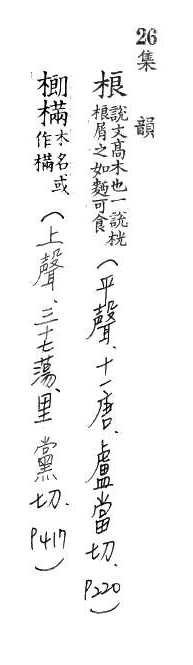 26 集 韻
桹 說文高木也一說桄桹屑之如麵可食(平聲、十一唐、盧當切、P220)
樠 木名或作樠(上聲、三十七蕩、里黨切、P417)